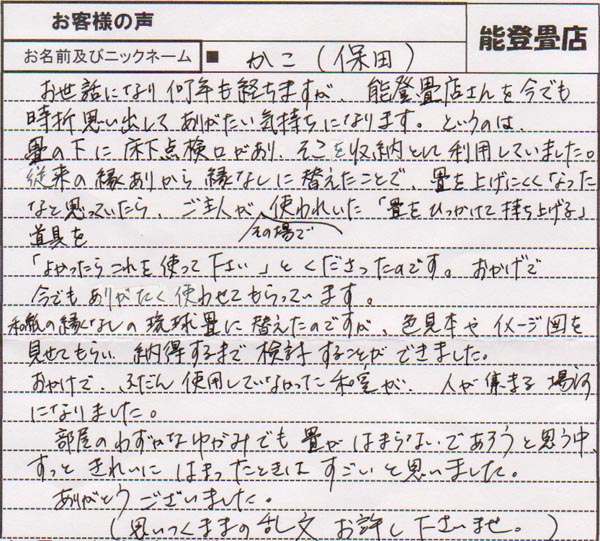 お客様の声
お名前及びニックネーム ■ かこ（保田）
能登畳店
お世話になり何年も経ちますが 能登畳店さんを今でも
時折思い出してありがたい気持ちになります。というのは、
畳の下に床下点検口があり、そこを収納として利用していました。
従来の縁ありから縁なしに替えたことで、畳を上げにくくなった
なと思っていたら、ご主人が その場で 使われいた「畳をひっかけて持ち上げる」
道具を
「よかったらこれを使って下さい」とくださったのです。おかげで
今でもありがたく使わせてもらっています。
和紙の縁なしの琉球畳に替えたのですが、色見本やイメージ図を
見せてもらい 納得するまで検討することができました。
おかげで、ふだん使用していなかった和室が、人が集まる場所
になりました。
部屋のわずかなゆがみでも畳がはまらないであろうと思う中、
すっときれいにはまったときはすごいと思いました。
ありがとうございました。
（思いつくままの乱文 お許し下さいませ。）